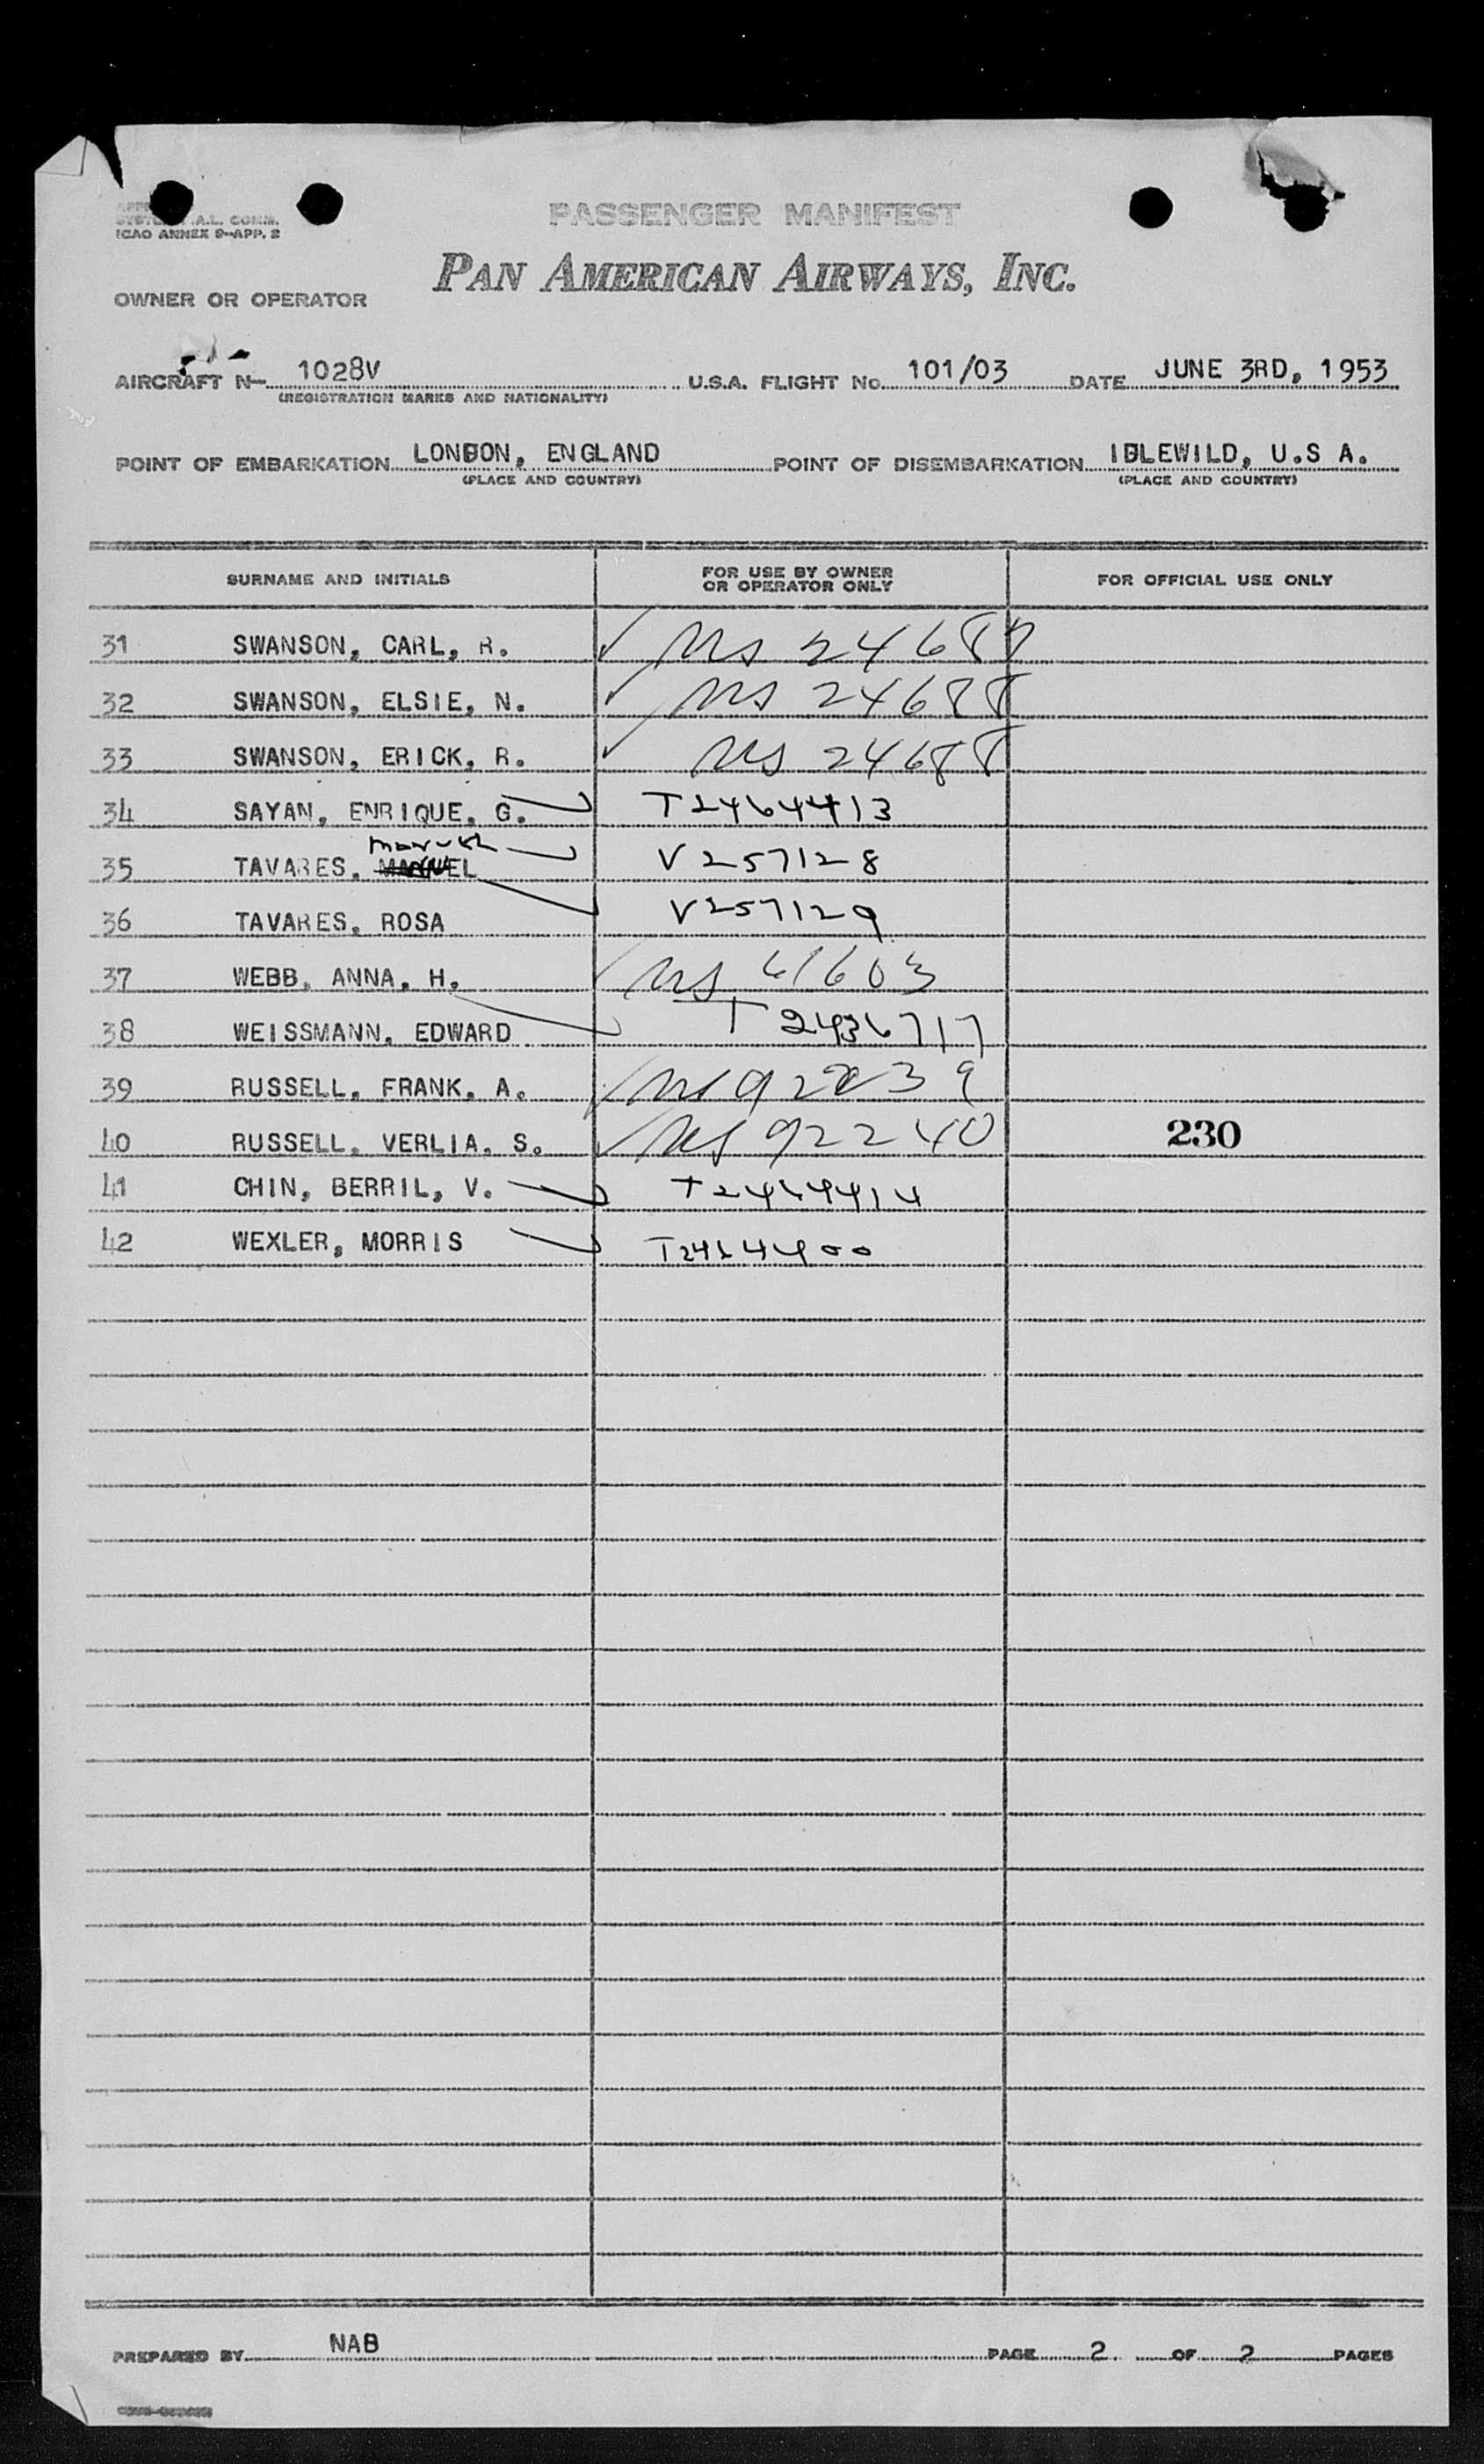 .A.L. COMM.
ICAO ANNEX 9-APP. 2
PASSENGER MANIFEST
PAN AMERICAN AIRWAYS, INC.
OWNER OR OPERATOR
AIRCRAFT N- 1028V U.S.A. FLIGHT No. 101/03 DATE JUNE 3RD, 1953
(REGISTRATION MARKS AND NATIONALITY)
POINT OF EMBARKATION LONDON, ENGLAND POINT OF DISEMBARKATION IDLEWILD, U.S A.
(PLACE AND COUNTRY) (PLACE AND COUNTRY)
SURNAME AND INITIALS FOR USE BY OWNER OR OPERATOR ONLY FOR OFFICIAL USE ONLY
31 SWANSON, CARL, R. US 24687
32 SWANSON, ELSIE, N. US 24688
33 SWANSON, ERICK, R. US 24688
34 SAYAN, ENRIQUE, G. T2464413
35 TAVARES, V257128
36 TAVARES, ROSA V257129
37 WEBB, ANNA, H. US 61603
38 WEISSMANN, EDWARD T 2436717
39 RUSSELL, FRANK, A. US 92239
40 RUSSELL, VERLIA, S. US 92240 230
41 CHIN, BERRIL, V. T2464414
42 WEXLER, MORRIS T2464400
PREPARED BY NAB PAGE 2 OF 2 PAGES